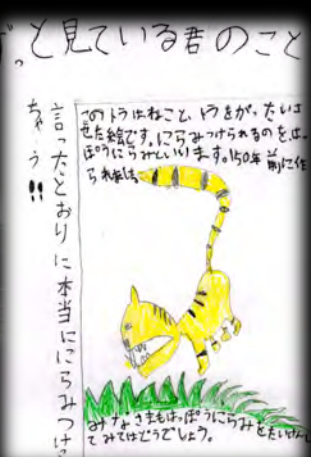 っと見ている君のこと
言ったとおりに本当ににらみつけ
ちゃう!!
このトラはねことトラをがったいさ
せた絵です。にらみつけられるのをはっ
ぽうにらみといいます。150年前に作
られました。
みなさまもはっぽうにらみをたいけんし
てみてはどうでしょう。